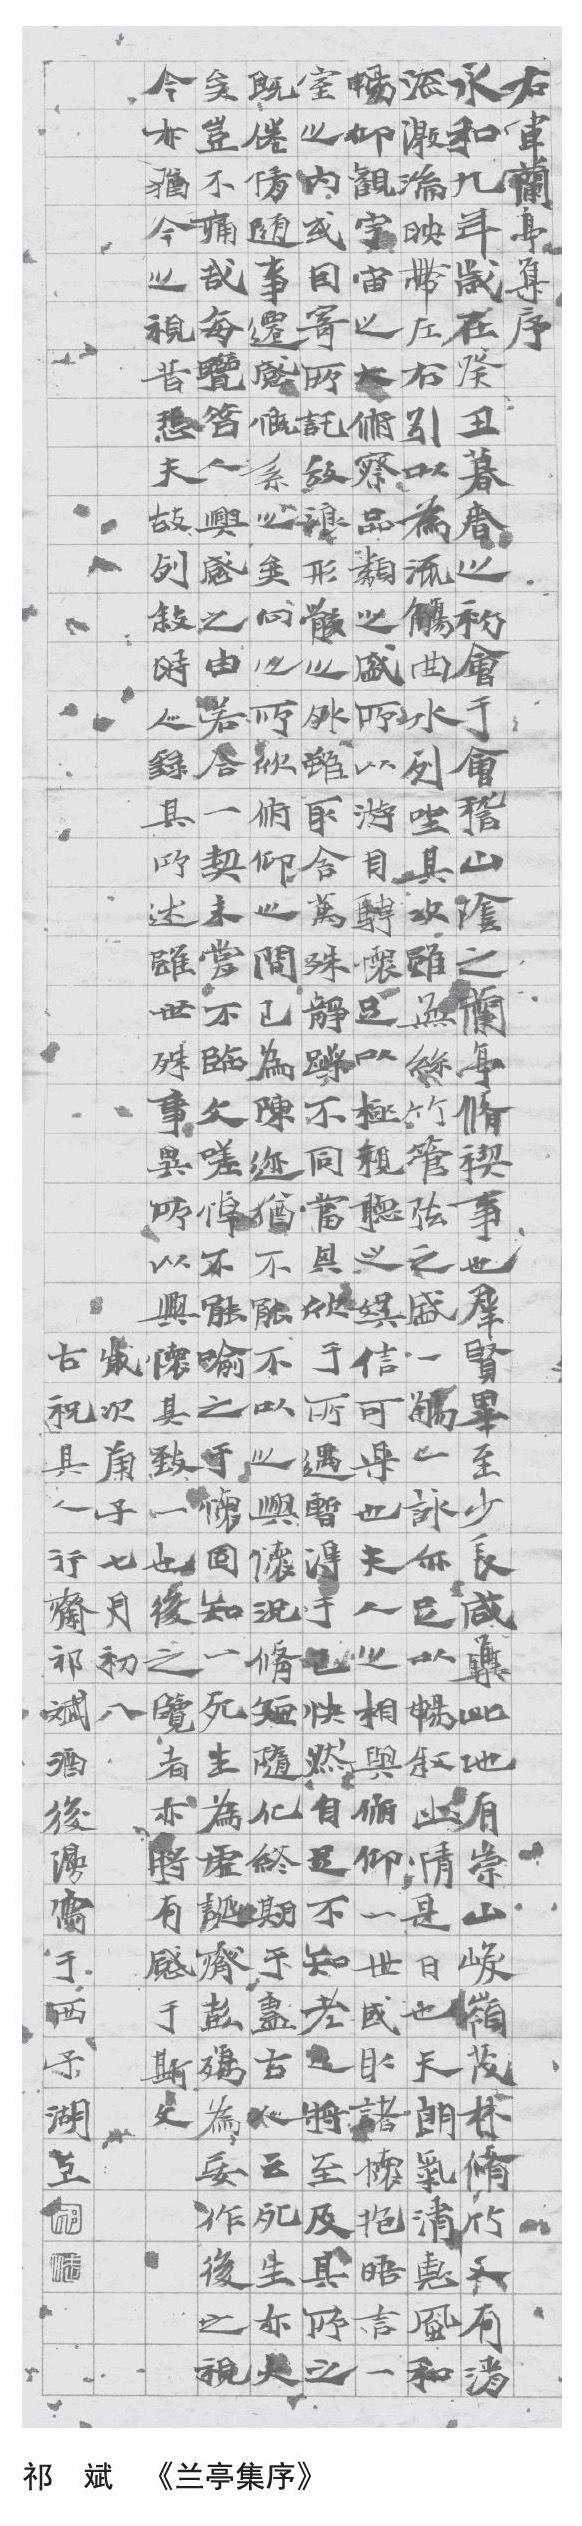 右軍蘭亭集序
永和九年歲在癸丑暮春之初會于會稽山陰之蘭亭脩禊事也群賢畢至少長咸集此地有崇山峻嶺茂林脩竹又有清
流激湍映帶左右引以為流觴曲水列坐其次雖無絲竹管弦之盛一觴一詠亦足以暢叙幽情是日也天朗氣清惠風和
暢仰觀宇宙之大俯察品類之盛所以游目騁懷足以極視聽之娛信可樂也夫人之相與俯仰一世或取諸懷抱晤言一
室之內或因寄所託放浪形骸之外雖取舍萬殊靜躁不同當其欣于所遇暫得于己快然自足不知老之將至及其所之
既倦情隨事遷感慨系之矣向之所欣俯仰之間已為陳迹猶不能不以之興懷況脩短隨化終期于盡古人云死生亦大
矣豈不痛哉每覽昔人興感之由若合一契未嘗不臨文嗟悼不能喻之于懷固知一死生為虛誕齊彭殤為妄作後之視
今亦猶今之視昔悲夫故列敘時人錄其所述雖世殊事異所以興懷其致一也後之覽者亦將有感于斯文
歲次庚子七月初八
古祝其人行齋祁斌酒後于西子湖
祁 斌 《兰亭集序》